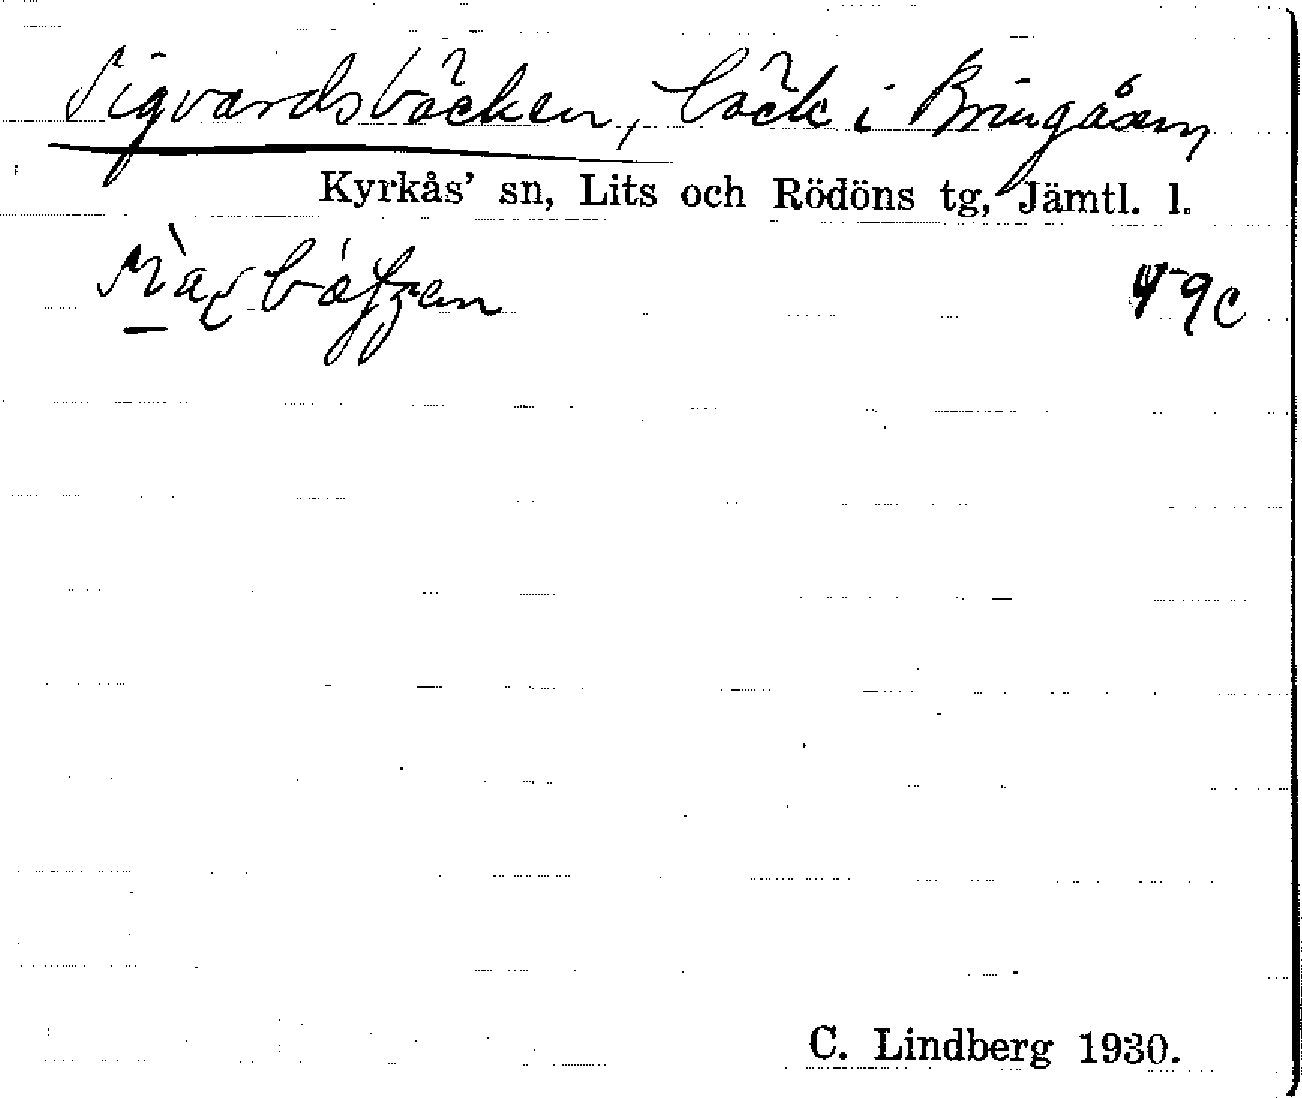 Sigvardsbäcken, bäck i Bringåsen,
Kyrkås' sn, Lits och Rödöns tg, Jämtl. l.
49c
C. Lindberg 1930.